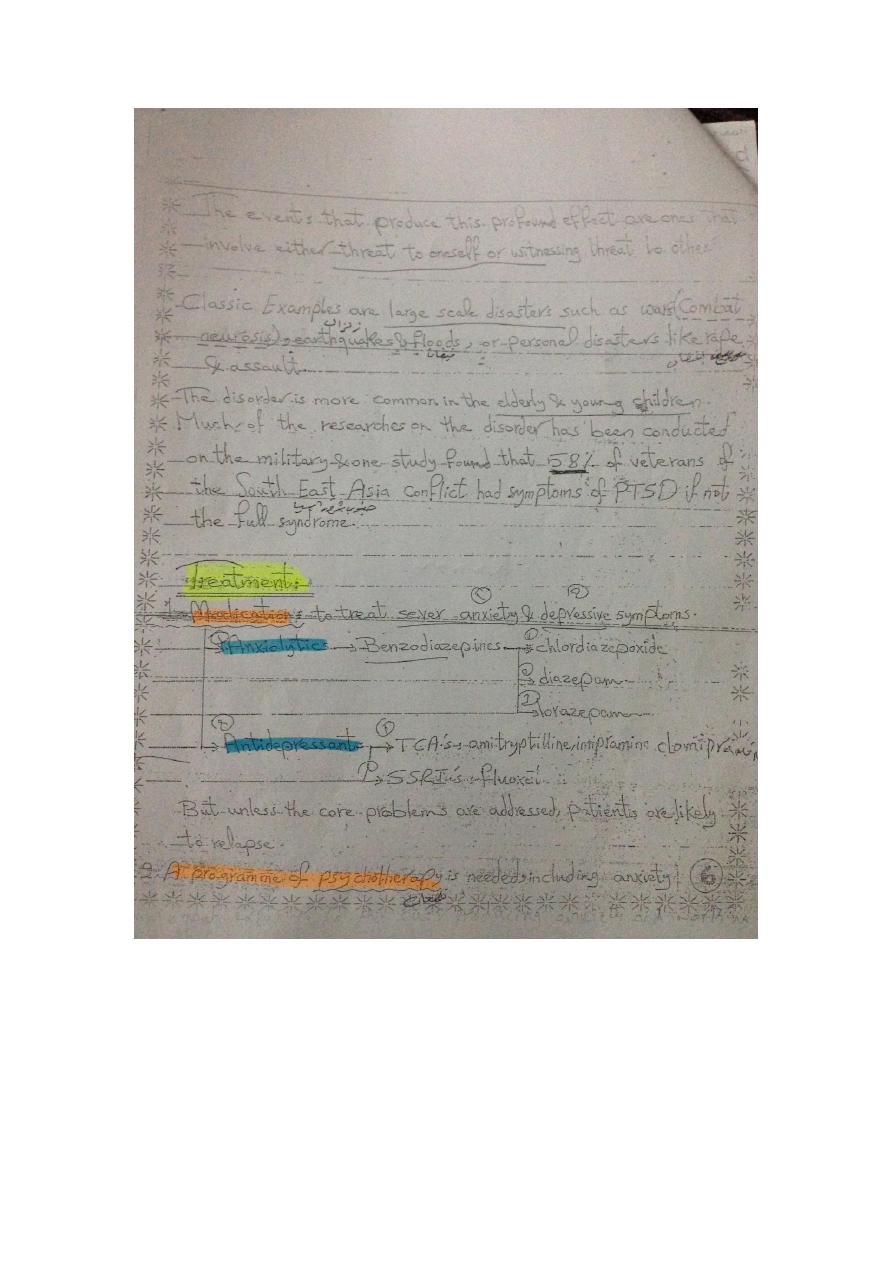 The events that produce this profound effect are ones that
involve either threat to oneself or witnessing threat to other
Classic Examples are large scale disasters such as wars (Combat
زلزال
neurosis), earthquakes & floods, or personal disasters like rape
فيضانات
& assault.
The disorder is more common in the elderly & young children.
Much of the researches on the disorder has been conducted
on the military & one study found that 58% of veterans of
the South East Asia conflict had symptoms of PTSD if not
جنوب شرق آسيا
the full syndrome.
treatment:
1- Medication: to treat sever anxiety & depressive symptoms.
Anxiolytics → Benzodiazepines → chlordiazepoxide
→ diazepam
→ lorazepam
→ Antidepressant → TCA's: amitryptilline, imipramine clomipramin
→ SSRI's: fluoxet
But unless the core problems are addressed, patients are likely
to relapse.
2. A programme of psychotherapy is needed including anxiety